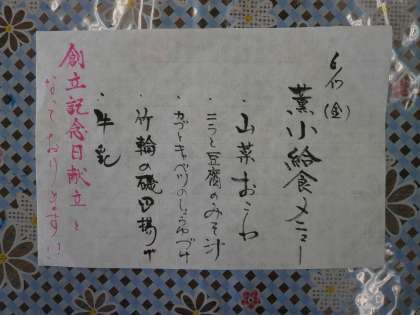 6/5(金)
薫小給食メニュー
・山菜おこわ
・ニラと豆腐のみそ汁
・カブとキャベツのしょうゆづけ
・竹輪の磯田揚げ
・牛乳
創立記念日献立と
なっております。